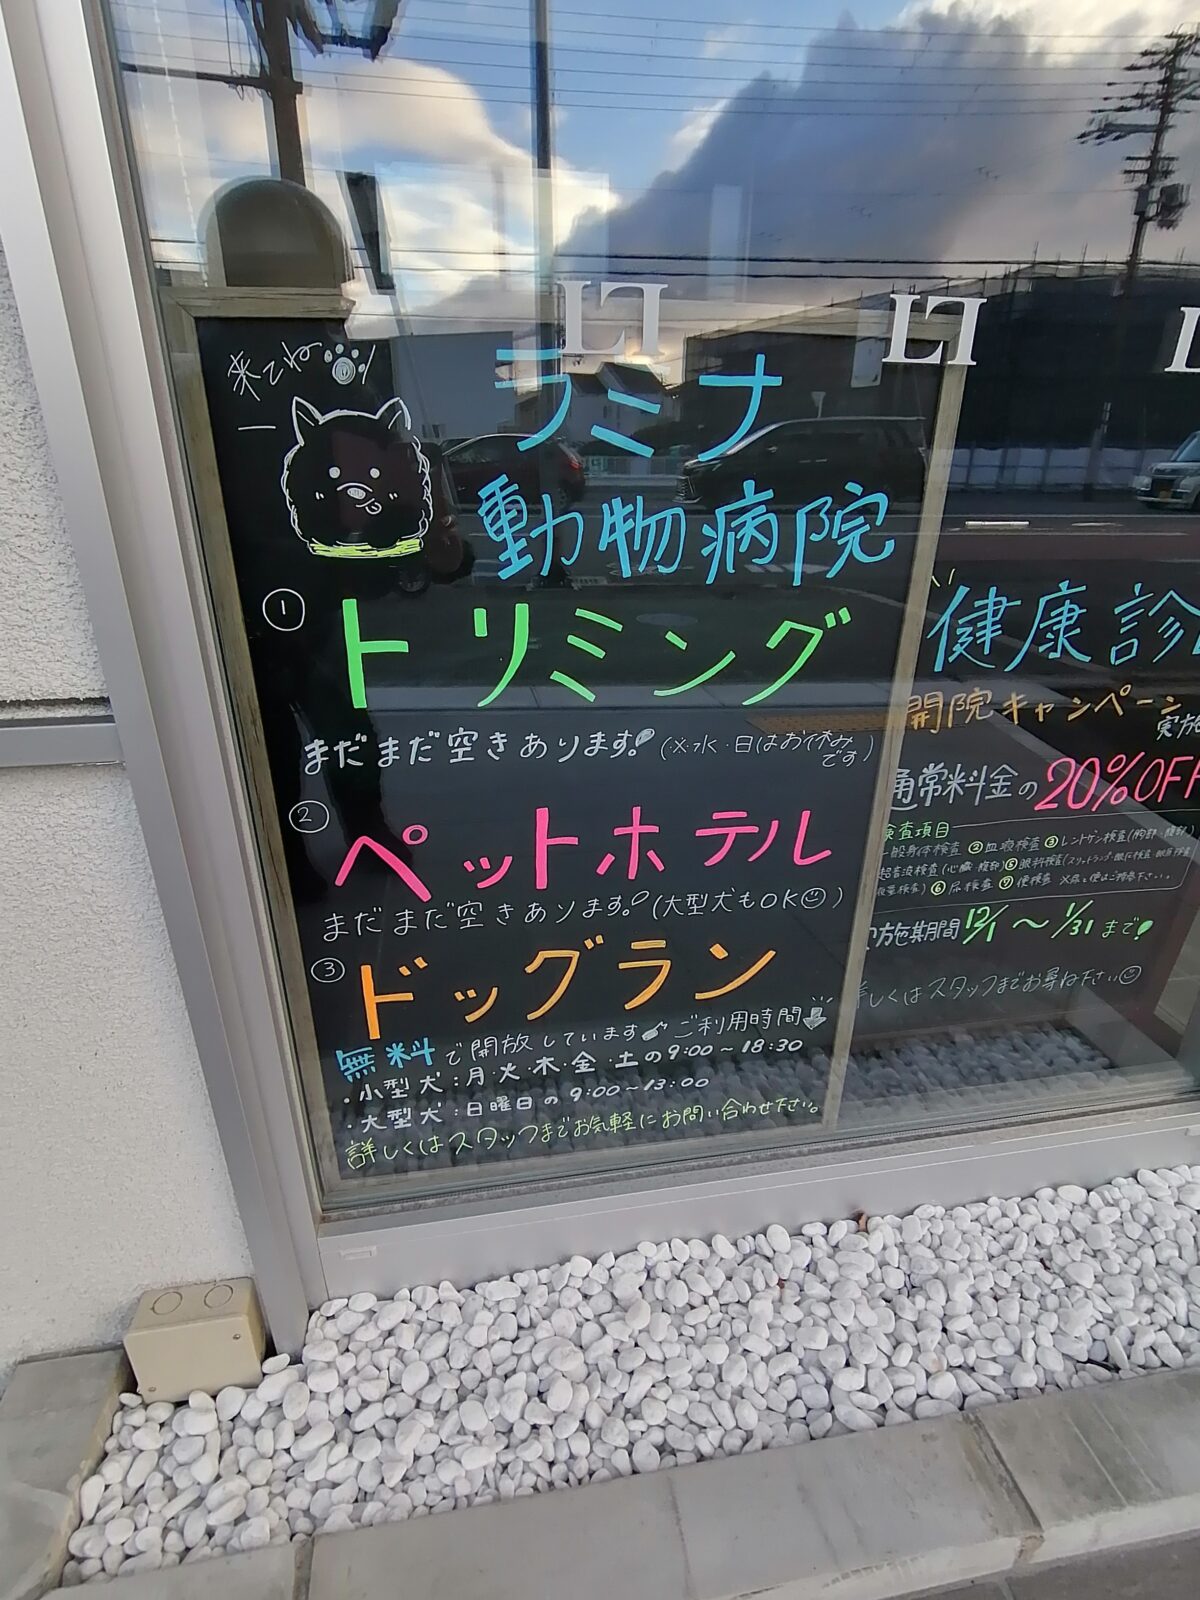 来てね
ラミナ
動物病院
① トリミング
まだまだ空きあります。(※水・日はお休みです)
② ペットホテル
まだまだ空きあります。(大型犬もOK)
③ ドッグラン
無料で開放しています ご利用時間
・小型犬:月・火・木・金・土の9:00〜18:30
・大型犬:日曜日の9:00〜13:00
詳しくはスタッフまでお気軽にお問い合わせ下さい。
健康診
開院キャンペーン
実施
通常料金の20%OFF
検査項目
一般身体検査 ②血液検査 ③レントゲン検査(胸部・腹部)
超音波検査(心臓・腹部)⑤眼科検査(スリットランプ・眼圧検査・眼底検査
⑥尿検査 ⑦便検査 ※尿と便はご持参下さい。
実施期間 12/1 〜 1/31 まで
詳しくはスタッフまでお尋ね下さい